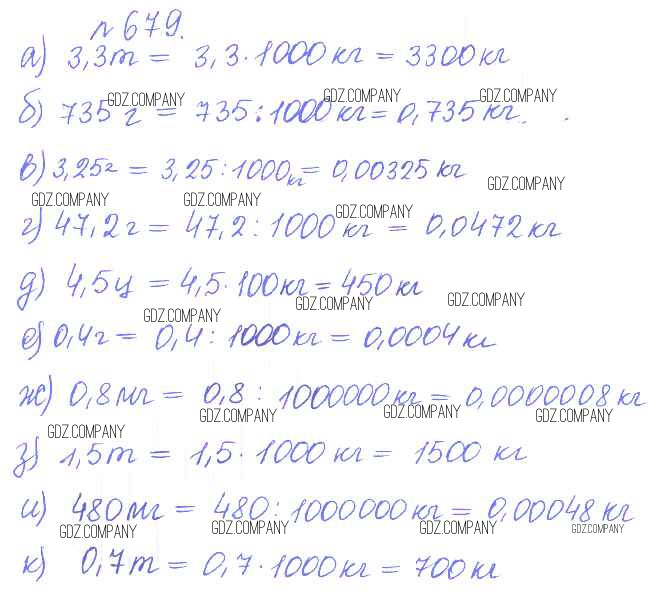 № 679.
а) 3,3т = 3,3·1000кг = 3300кг
GDZ.COMPANY GDZ.COMPANY GDZ.COMPANY
б) 735 г = 735:1000кг = 0,735 кг.
в) 3,25г = 3,25:1000кг = 0,00325 кг
GDZ.COMPANY
GDZ.COMPANY GDZ.COMPANY
GDZ.COMPANY
г) 47,2 г = 47,2: 1000 кг = 0,0472 кг
д) 4,5ц = 4,5·100кг = 450 кг
GDZ.COMPANY GDZ.COMPANY GDZ.COMPANY
е) 0,4г = 0,4: 1000кг = 0,0004 кг
ж) 0,8мг = 0,8 : 1000000кг = 0,0000008 кг
GDZ.COMPANY GDZ.COMPANY GDZ.COMPANY
GDZ.COMPANY
з) 1,5т = 1,5·1000 кг = 1500 кг
и) 480мг = 480:1000000 кг = 0,00048 кг
GDZ.COMPANY GDZ.COMPANY GDZ.COMPANY GDZ.COMPANY
к) 0,7т = 0,7·1000кг = 700кг